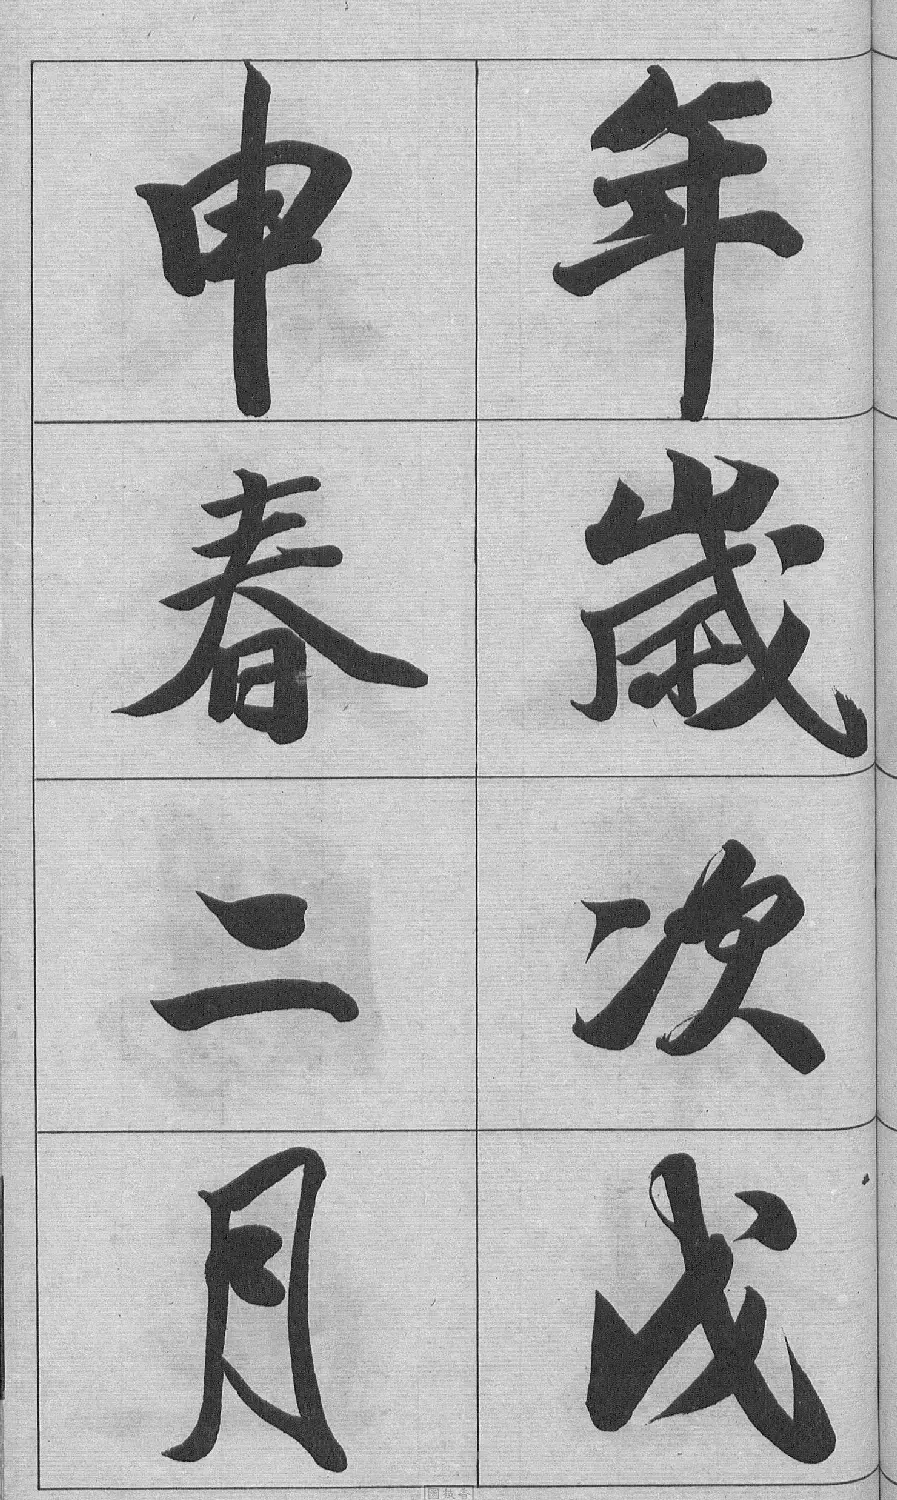 年歲次戊
申春二月